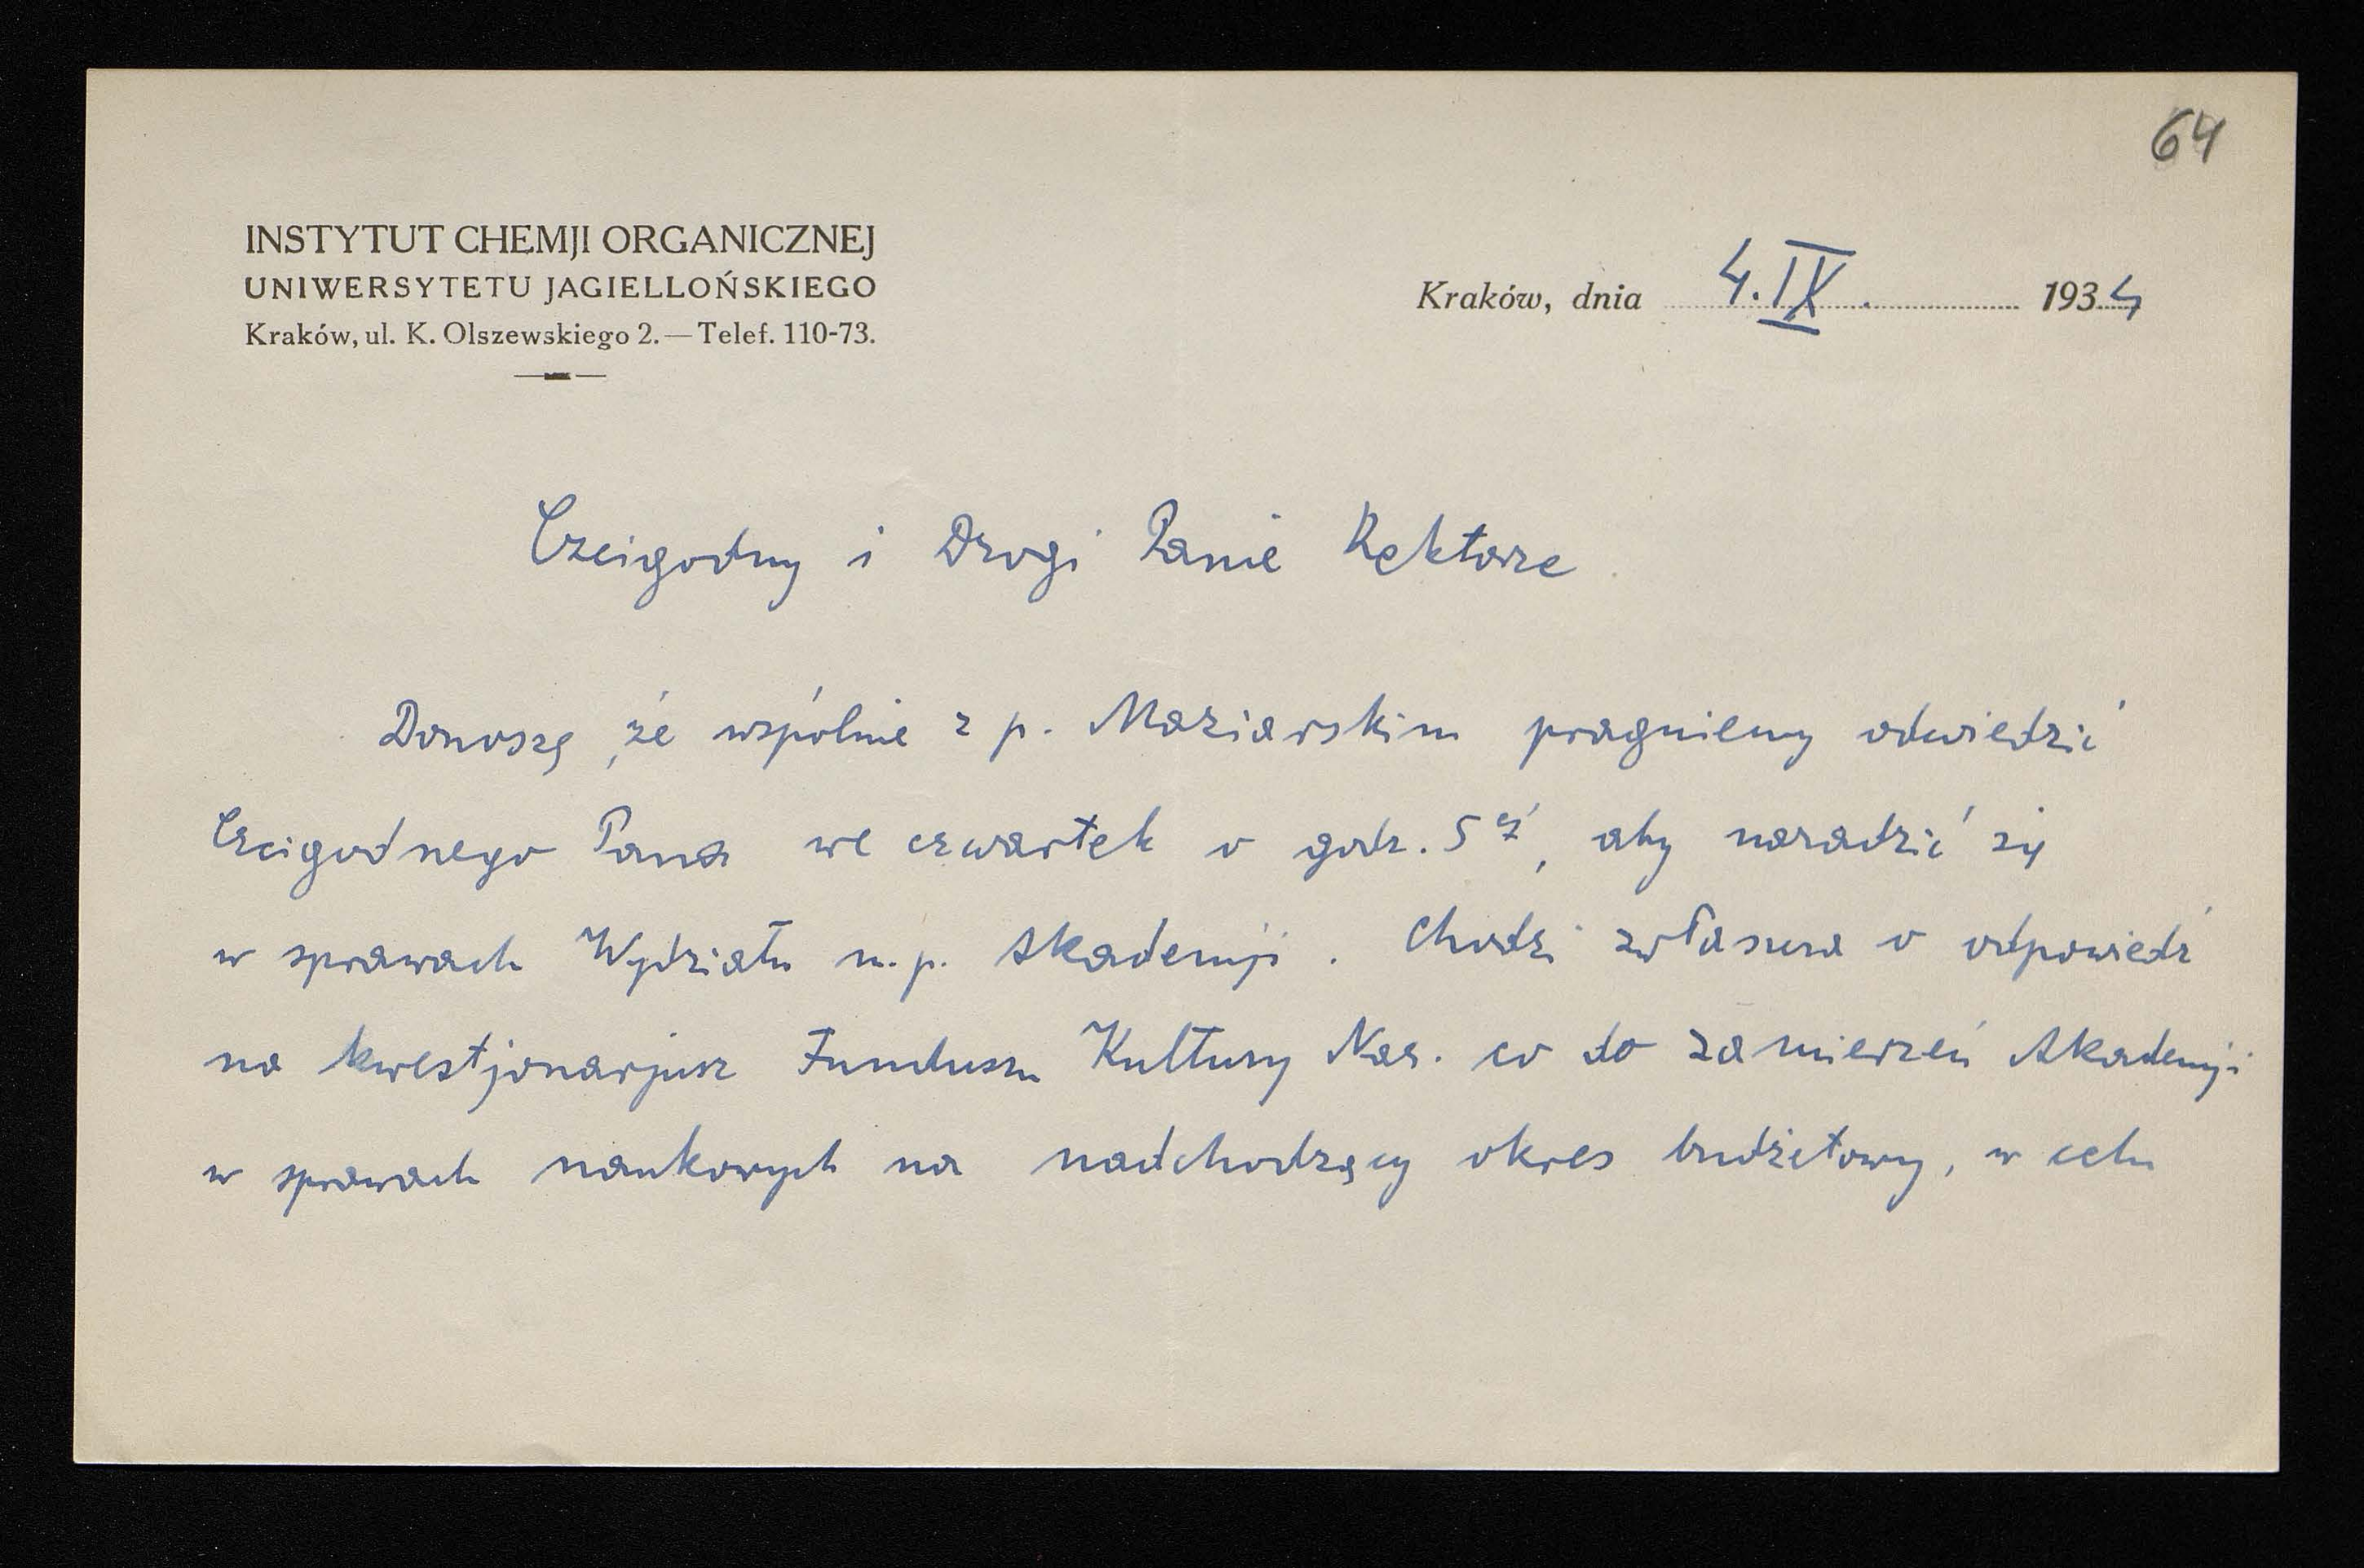 64
INSTYTUT CHEMJI ORGANICZNEJ
UNIWERSYTETU JAGIELLOŃSKIEGO
Kraków, ul. K. Olszewskiego 2. — Telef. 110-73.
Kraków, dnia 4. IX. 1934
Czcigodny i Drogi Panie Rektorze
Donoszę, że wspólnie z p. Maziarskim pragniemy odwiedzić
Czcigodnego Pana we czwartek o godz. 5ej, aby naradzić się
w sprawach Wydziału m. p. Akademji. Chodzi zwłaszcza o odpowiedź
na kwestjonarjusz Funduszu Kultury Nar. co do zamierzeń Akademji
w sprawach naukowych na nadchodzący okres budżetowy, w celu